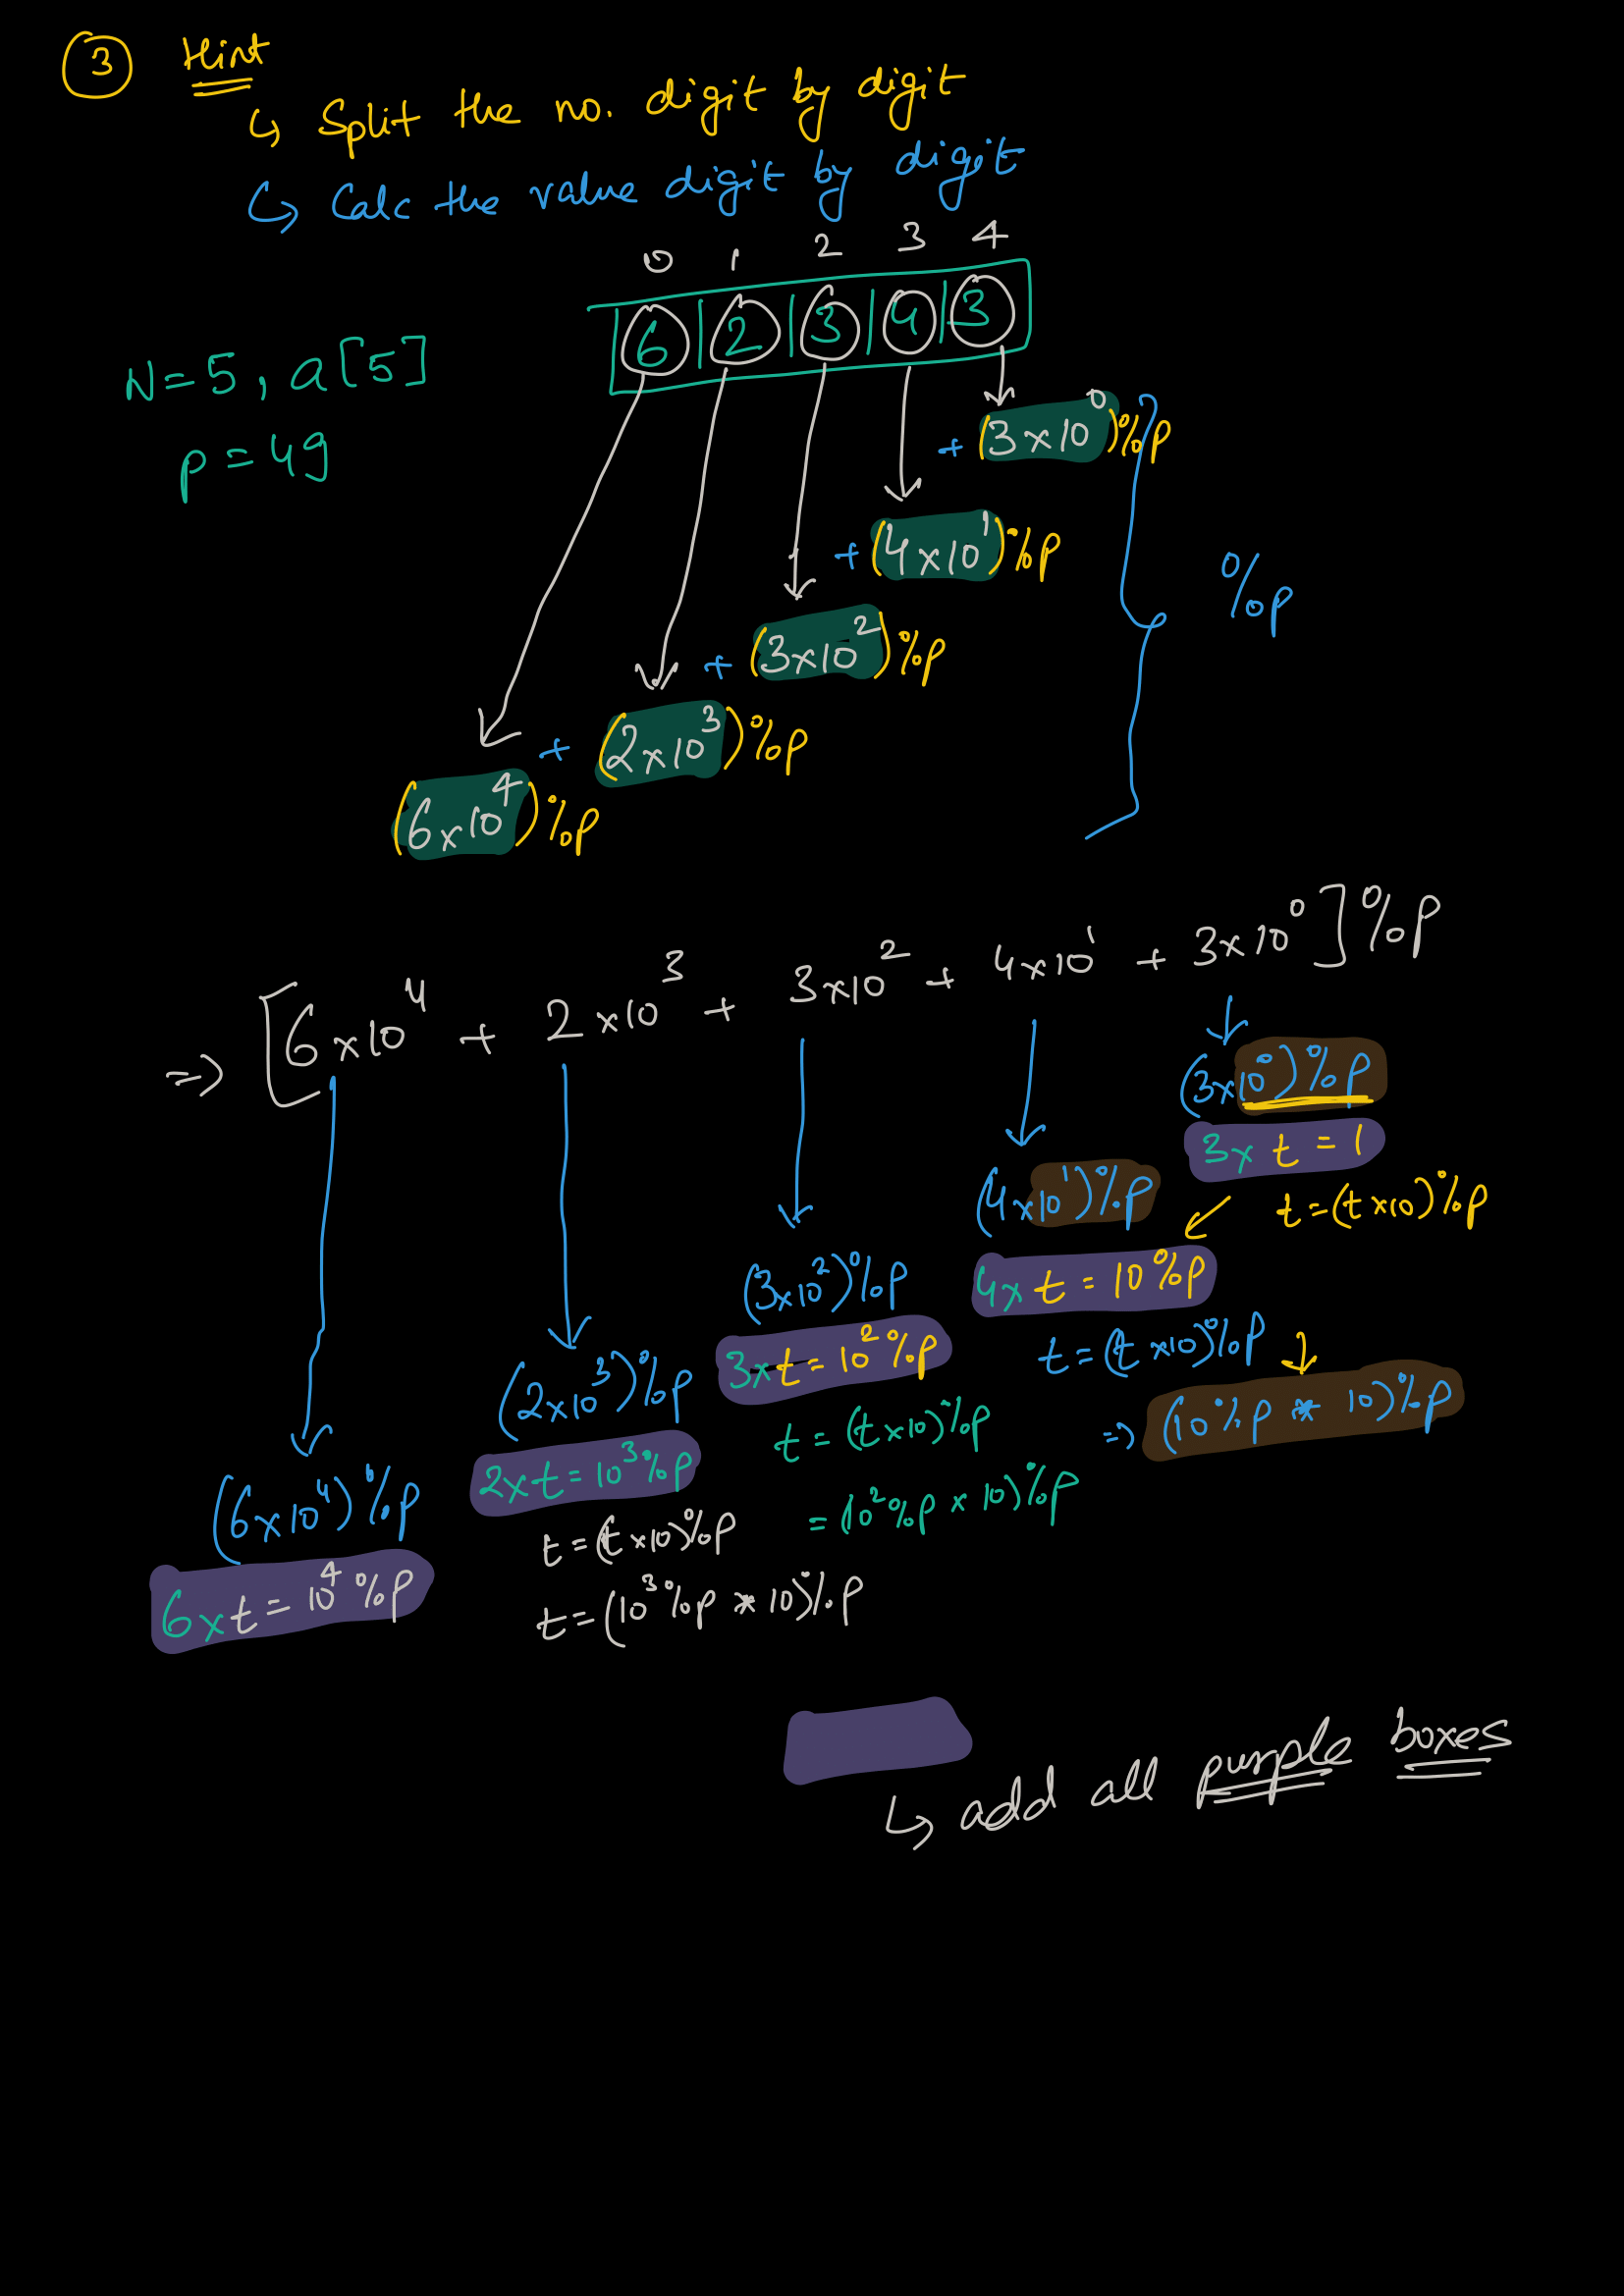 3 Hint
↳ Split the no. digit by digit
↳ Calc the value digit by digit
0 1 2 3 4
6 | 2 | 3 | 4 | 3
N = 5, a[5]
p = 49
+ (3 x 10⁰) % p
+ (4 x 10¹) % p
+ (3 x 10²) % p
+ (2 x 10³) % p
(6 x 10⁴) % p
% p
=> [6 x 10⁴ + 2 x 10³ + 3 x 10² + 4 x 10¹ + 3 x 10⁰] % p
(3 x 10⁰) % p
3 x t = 1
t = (t x 10) % p
(4 x 10¹) % p
4 x t = 10 % p
t = (t x 10) % p
=> (10 % p * 10) % p
(3 x 10²) % p
3 x t = 10² % p
t = (t x 10) % p
= (10² % p x 10) % p
(2 x 10³) % p
2 x t = 10³ % p
t = (t x 10) % p
t = (10³ % p * 10) % p
(6 x 10⁴) % p
6 x t = 10⁴ % p
↳ add all purple boxes